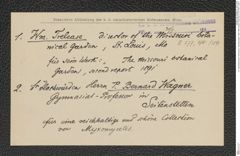 Botanische Abteilung des k. k. naturhistorischen Hofmuseums, Wien.
1. Wm. Trelease Director of the Missouri bota-
nical Garden, St. Louis, etc
für sein Werk: The Missouri botanical
Garden, second report 1891.
2. Sr. Hochwürden Herrn P. Bernard Wagner
Gymnasial-Professor in
Seitenstetten
für eine reichhaltige und schöne Collection
von Myxomyceten